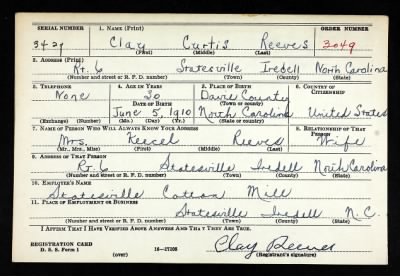 SERIAL NUMBER 1. NAME (Print) ORDER NUMBER
3421 Clay Curtis Reeves 3049
(First) (Middle) (Last)
2. ADDRESS (Print)
Rt. 6 Statesville Iredell North Carolina
(Number and street or R. F. D. number) (Town) (County) (State)
3. TELEPHONE 4. AGE IN YEARS 5. PLACE OF BIRTH 6. COUNTRY OF CITIZENSHIP
None 30 Davie County
DATE OF BIRTH (Town or county)
June 5, 1910 North Carolina United States
(Exchange) (Number) (Mo.) (Day) (Yr.) (State or country)
7. NAME OF PERSON WHO WILL ALWAYS KNOW YOUR ADDRESS 8. RELATIONSHIP OF THAT PERSON
Mrs. Reeves Wife
(Mr., Mrs., Miss) (First) (Middle) (Last)
9. ADDRESS OF THAT PERSON
Rt. 6 Statesville Iredell North Carolina
(Number and street or R. F. D. number) (Town) (County) (State)
10. EMPLOYER'S NAME
Statesville Cotton Mill
11. PLACE OF EMPLOYMENT OR BUSINESS
Statesville Iredell N.C.
(Number and street or R. F. D. number) (Town) (County) (State)
I AFFIRM THAT I HAVE VERIFIED ABOVE ANSWERS AND THAT THEY ARE TRUE.
REGISTRATION CARD
D. S. S. Form 1 16—17105 Clay Reeves
(over) (Registrant's signature)